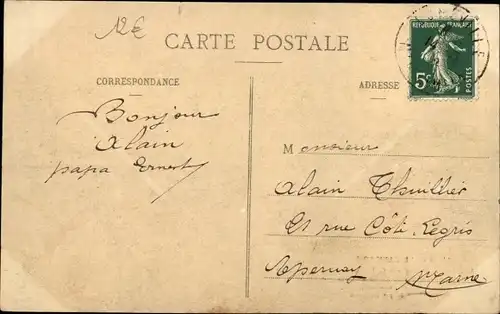 12€
CARTE POSTALE
CORRESPONDANCE
ADRESSE
REPUBLIQUE FRANÇAISE
5c
POSTES
Bonjour
Alain
papa Ernest
Monsieur
Alain Thuillier
21 rue Côte Legris
Epernay
Marne